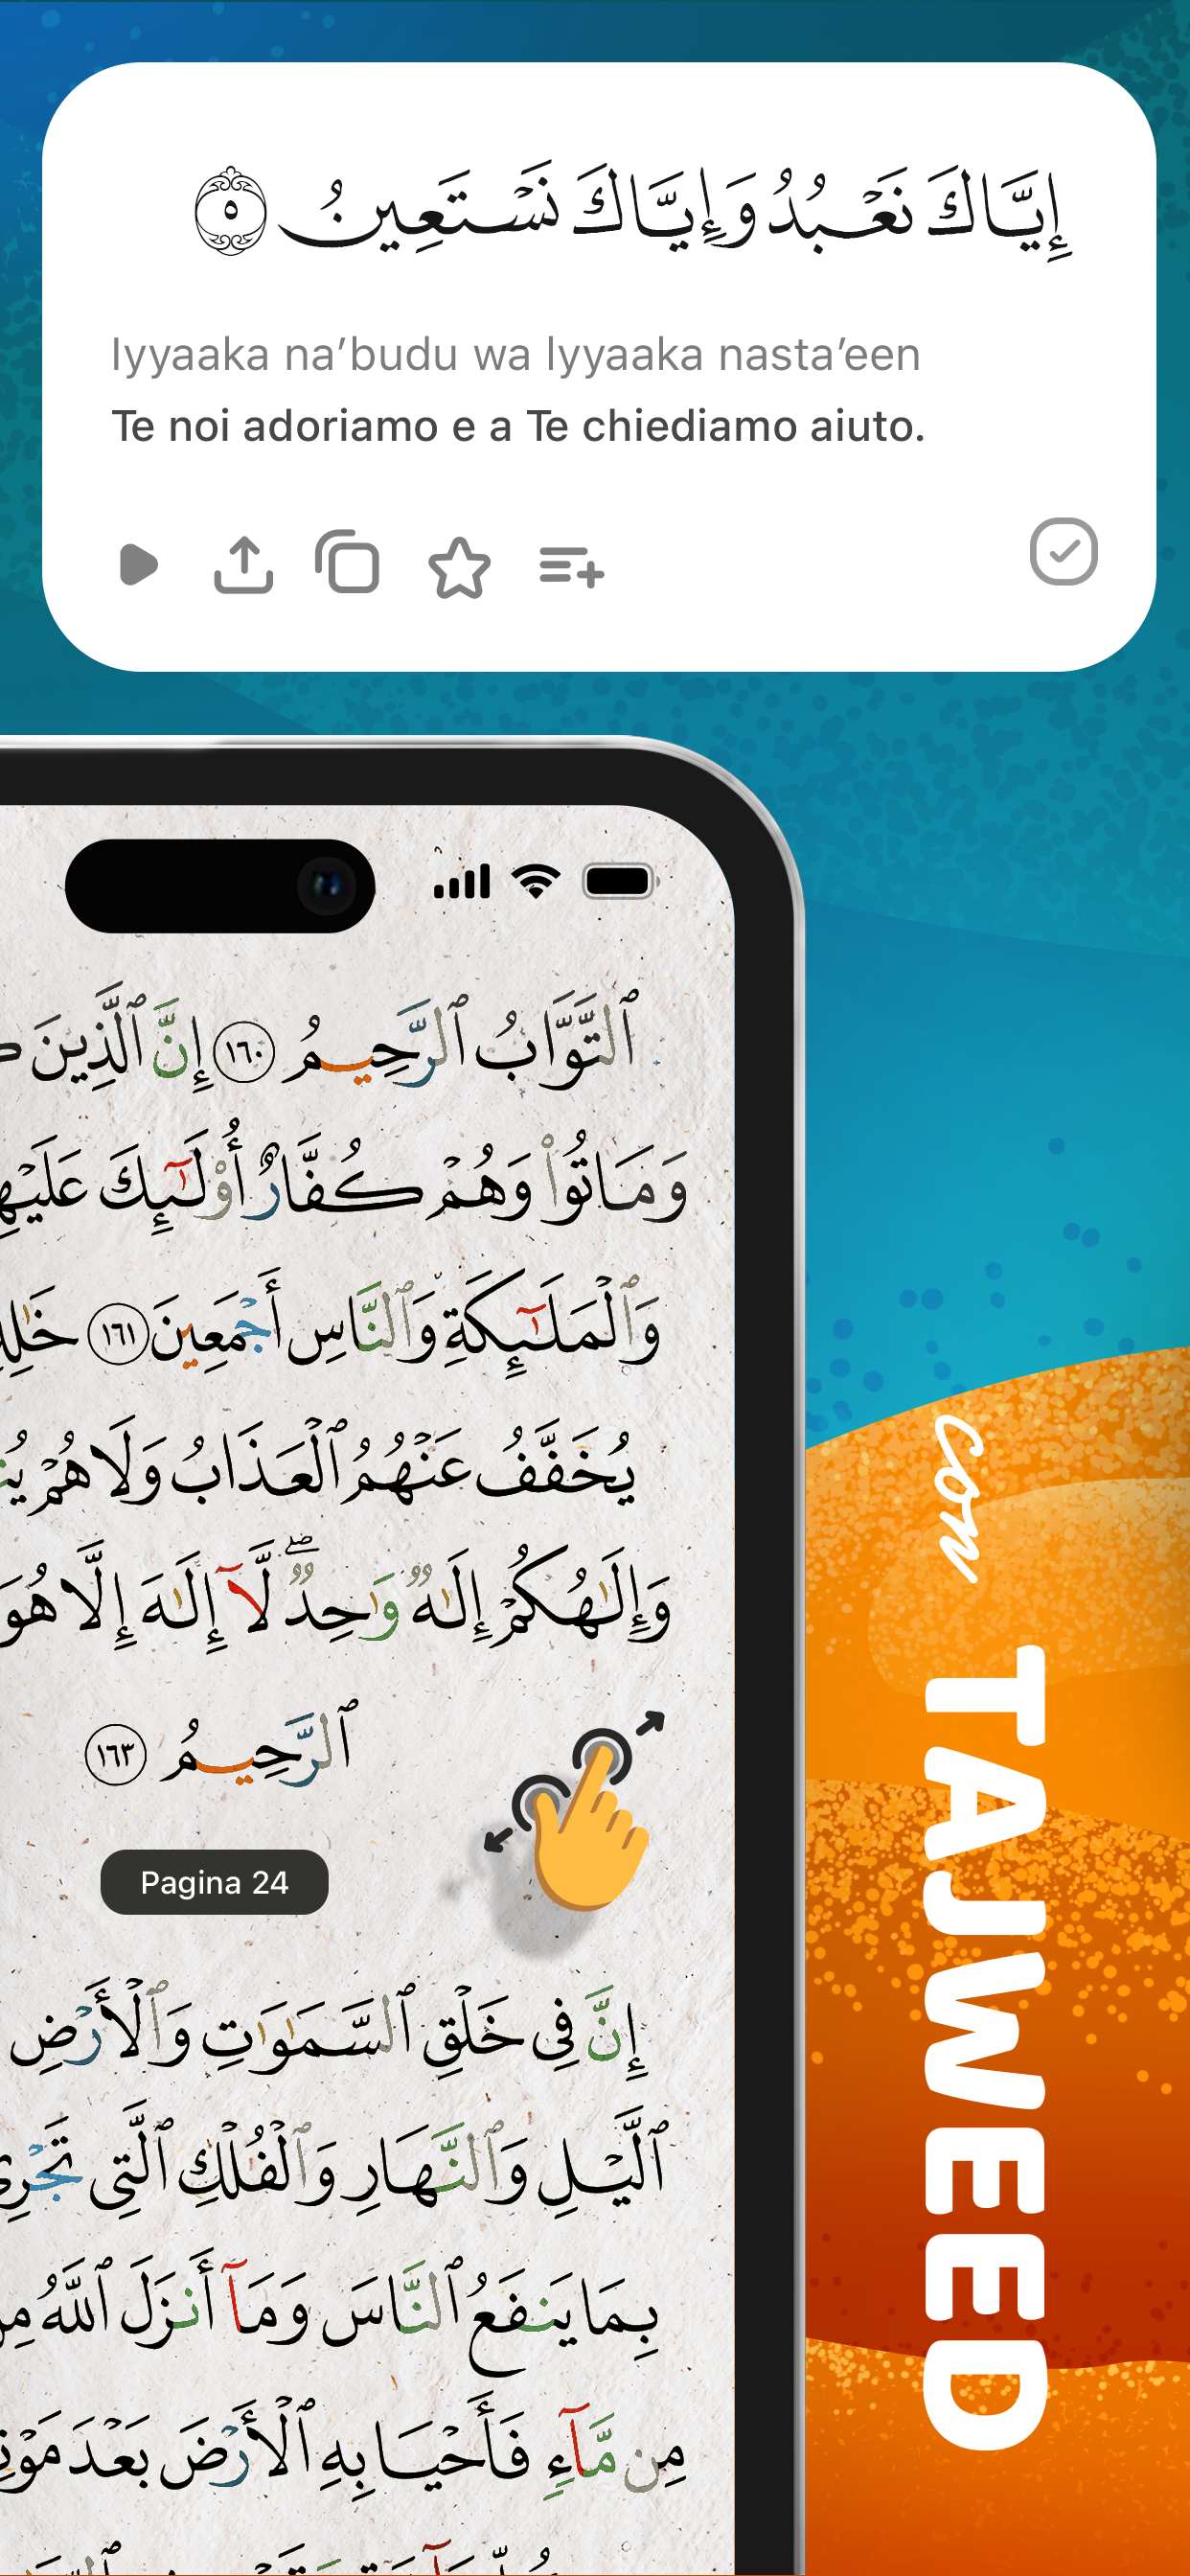 إِيَّاكَ نَعْبُدُ وَإِيَّاكَ نَسْتَعِينُ ٥
Iyyaaka na’budu wa Iyyaaka nasta’een
Te noi adoriamo e a Te chiediamo aiuto.
ٱلتَّوَّابُ ٱلرَّحِيمُ ١٦٠ إِنَّ ٱلَّذِينَ
وَمَاتُوا۟ وَهُمْ كُفَّارٌ أُو۟لَـٰٓئِكَ
وَٱلْمَلَـٰٓئِكَةِ وَٱلنَّاسِ أَجْمَعِينَ ١٦١
يُخَفَّفُ عَنْهُمُ ٱلْعَذَابُ وَلَا هُمْ
وَإِلَـٰهُكُمْ إِلَـٰهٌ وَٰحِدٌ ۖ لَّآ إِلَـٰهَ إِلَّا هُوَ
ٱلرَّحِيمُ ١٦٣
Pagina 24
إِنَّ فِى خَلْقِ ٱلسَّمَـٰوَٰتِ وَٱلْأَرْضِ
ٱلَّيْلِ وَٱلنَّهَارِ وَٱلْفُلْكِ ٱلَّتِى تَجْرِى
بِمَا يَنفَعُ ٱلنَّاسَ وَمَآ أَنزَلَ ٱللَّهُ
مِن مَّآءٍ فَأَحْيَا بِهِ ٱلْأَرْضَ بَعْدَ
con TAJWEED